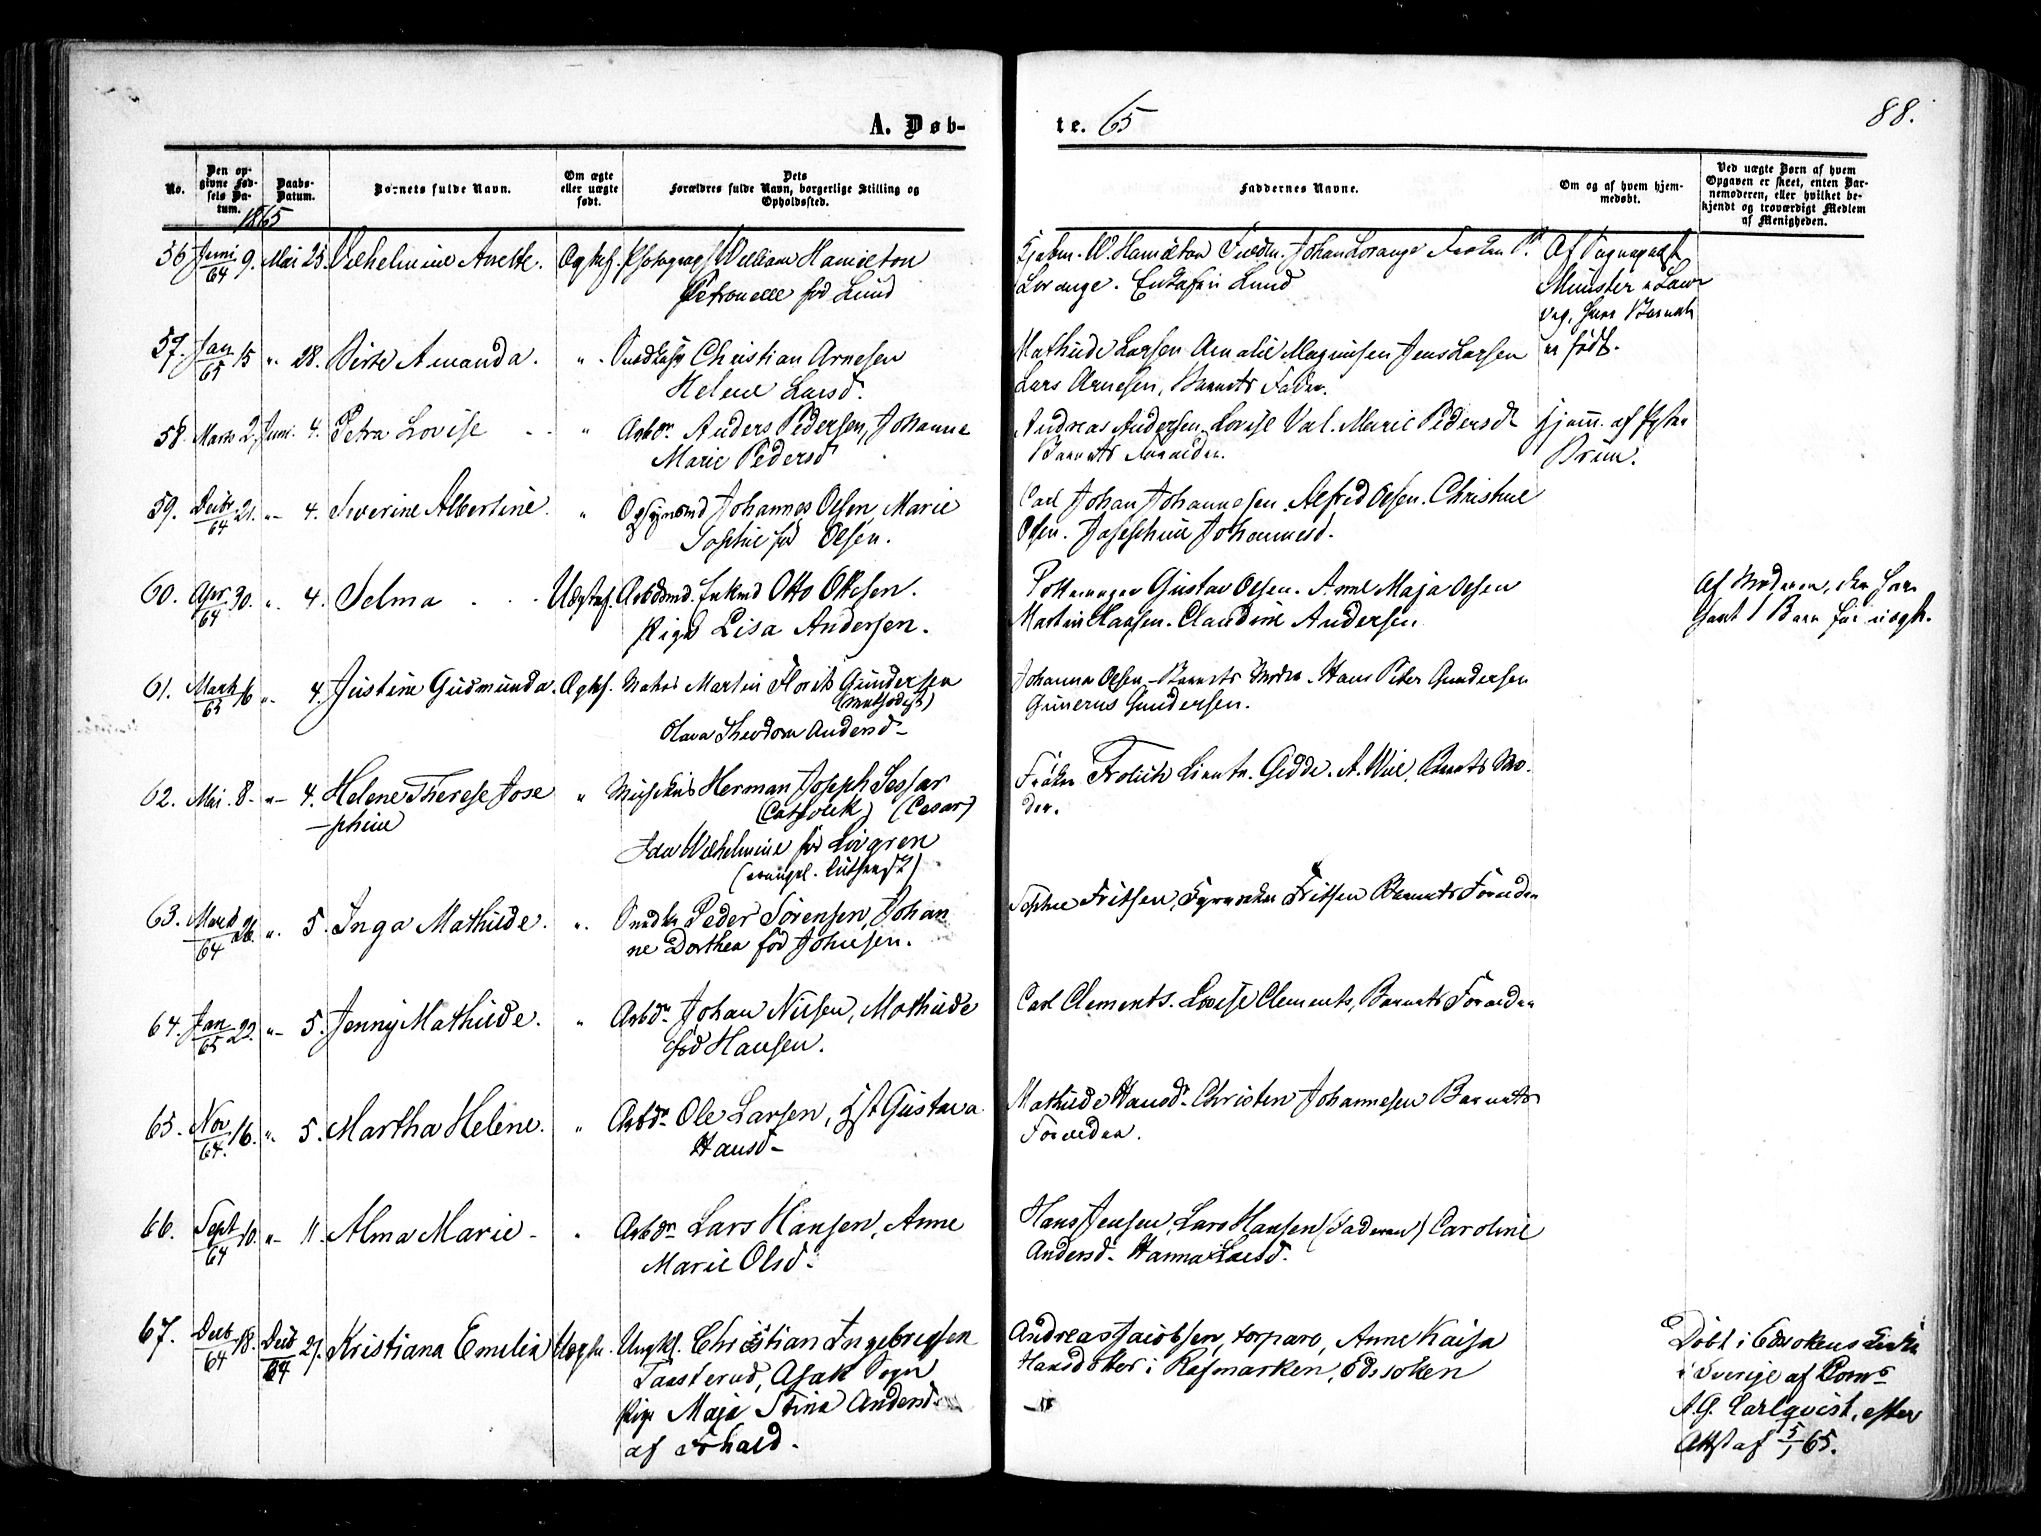 A. Døb-
te. 65
88.
No.
Den op-
givne Fød-
sels Da-
tum.
Daabs-
Datum.
Barnets fulde Navn.
Om ægte
eller uægte
født.
Dets
Forældres fulde Navn, borgerlige Stilling og
Opholdssted.
Faddernes Navne.
Om og af hvem hjem-
medøbt.
Ved uægte Børn af hvem
Opgaven er skeet, enten Bar-
nemoderen, eller hvilket be-
kjendt og troværdigt Medlem
af Menigheden.
1865
56 Juni/64 9. Mai 25. Vilhelmine Anette. Ægtef. Photograf William Hamilton
Petronelle fød Lund
W. Hamilton Johan Lorange
Lorange. Lund
Münster
er født.
57. Jan/65 15 " 28. Birte Amanda. " Christian Arnesen
Helene Larsd.
Mathilde Larsen Amalie Magnusen Jens Larsen
Lars Arnesen, Barnets Fader.
58. Marts 2. Juni. 4. Petra Lovise " Arbdr. Anders Pedersen, Johanne
Marie Pedersd
Andreas Andersen Lovise Val. Marie Pedersd
Barnets Forældre.
Hjem. af
Bruun.
59. Decbr/64 21. " 4. Severine Albertine. " Johannes Olsen, Marie
Sophie fød Olsen.
Carl Johan Johannesen. Alfred Olsen. Christine
Olsen. Josephine Johannesd.
60. Apr/64 30. " 4. Selma Uægtef. Arbdsmd. Enkmd Otto Ottesen.
Pige Lisa Andersen.
Gustav Olsen. Anne Maja Olsen
Martin Claasen. Claudine Andersen
Af Moderen, der har
havt 1 Barn før uægte.
61. Marts/65 16 " 4. Justine Gudmunda. Ægtef. Martin Florits Gundersen
(Methodist)
Olava Theodora Andersd
Johanna Olsen, Barnets Moder. Hans Peter Gundersen
Gunerus Gundersen.
62. Mai 8. " 4. Helene Therese Jose
phine " Musikus Herman Joseph Sessar
(Catholik) (Cesar)
Ida Wilhelmine fød Lövgren
(evangel. luthersk)
Frøken Frolich Lieutn. Gedde. A. Wiel, Barnets Mo-
der.
63. Marts/64 26. " 5. Inga Mathilde. " Snedkr Peder Sørensen, Johan
ne Dorthea fød Johnsen.
Sophie Fritsen, Fritsen Barnets Forældre
64. Jan/65 22. " 5. Jenny Mathilde. " Arbdr. Johan Nilsen, Mathilde
fød Hansen.
Carl Clements. Lovise Clements, Barnets Forældre
65. Nov/64. 16. " 5. Martha Helene. " Arbdr Ole Larsen, Gustava
Hansd
Mathilde Hansd. Christen Johannesen Barnets
Forældre.
66. Sept/64 10. " 11. Alma Marie " Arbdr Lars Hansen, Anne
Marie Olsd.
Hans Jensen, Lars Hansen (Faderen) Caroline
Andersd. Hanna Larsd.
67. Decb/64 18. Decb/64 27. Kristiana Emelia Uægte. Ungkl. Christian Ingebregtsen
Taasterud, Asak Sogn
Pige Maja Stina Andersd
af Frhald.
Andreas Jacobsen, torpare, Anne Kaisa
Hansdoter i Rafmarken, Edssoken
Døbt i Edsokens Kirke
i Sverige af
A. G. Carlqvist, efter
Attst af 5/1 65.